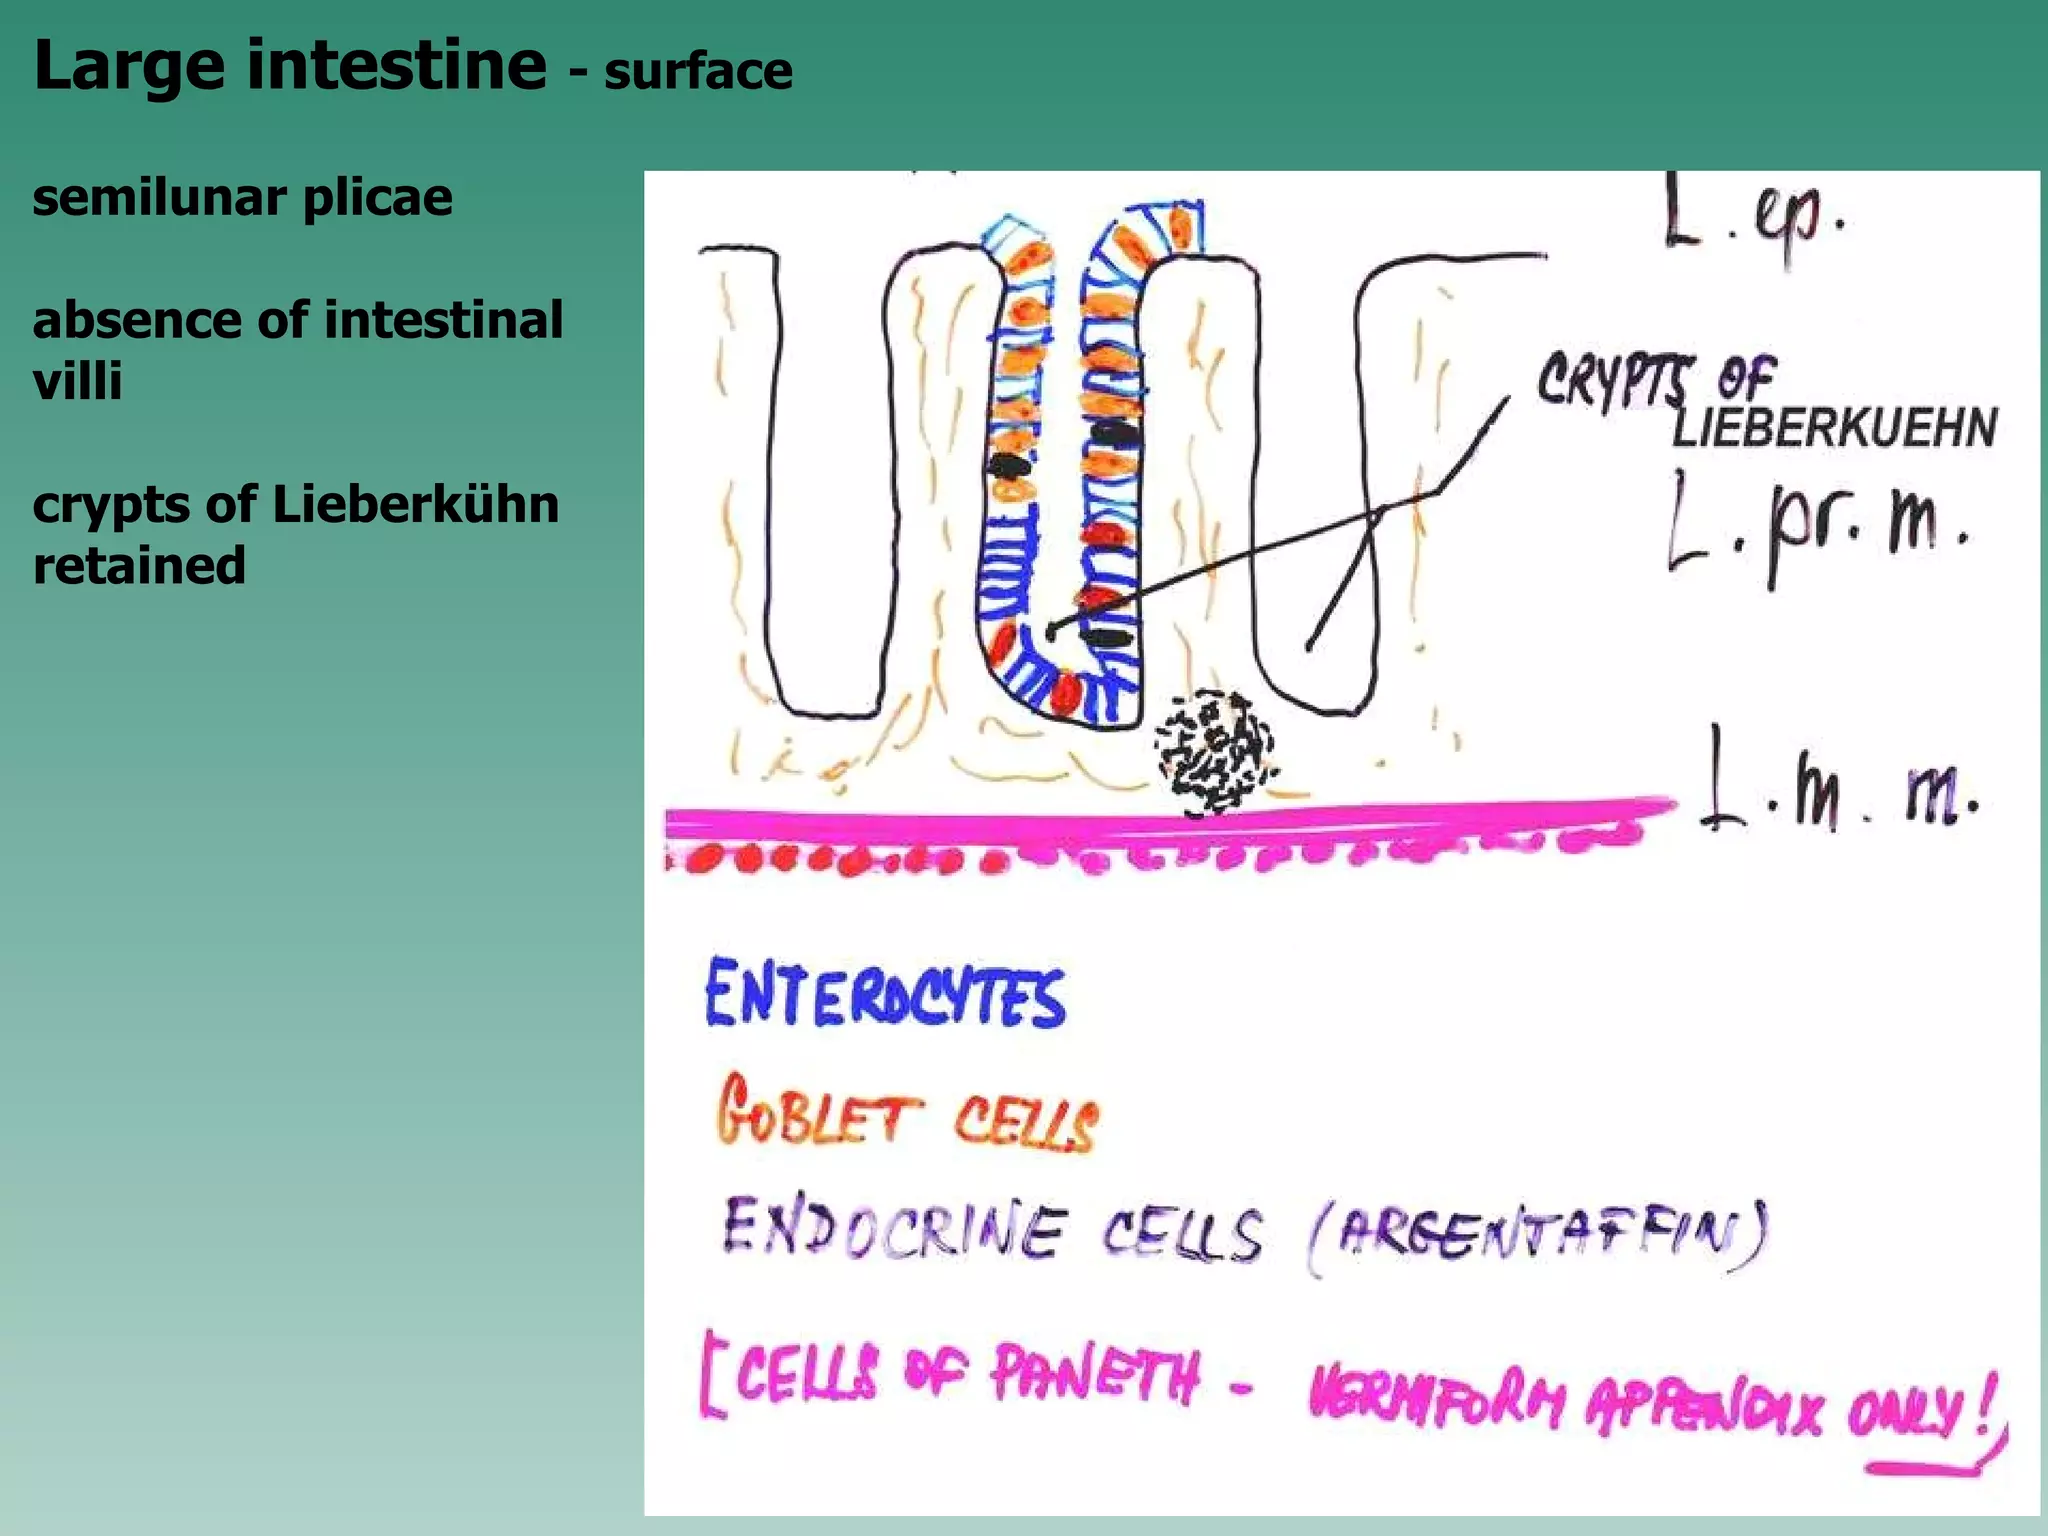 Large intestine - surface
semilunar plicae
absence of intestinal
villi
crypts of Lieberkühn
retained
L. ep.
CRYPTS OF
LIEBERKUEHN
L. pr. m.
L. m. m.
ENTEROCYTES
GOBLET CELLS
ENDOCRINE CELLS (ARGENTAFFIN)
[CELLS OF PANETH - VERMIFORM APPENDIX ONLY!